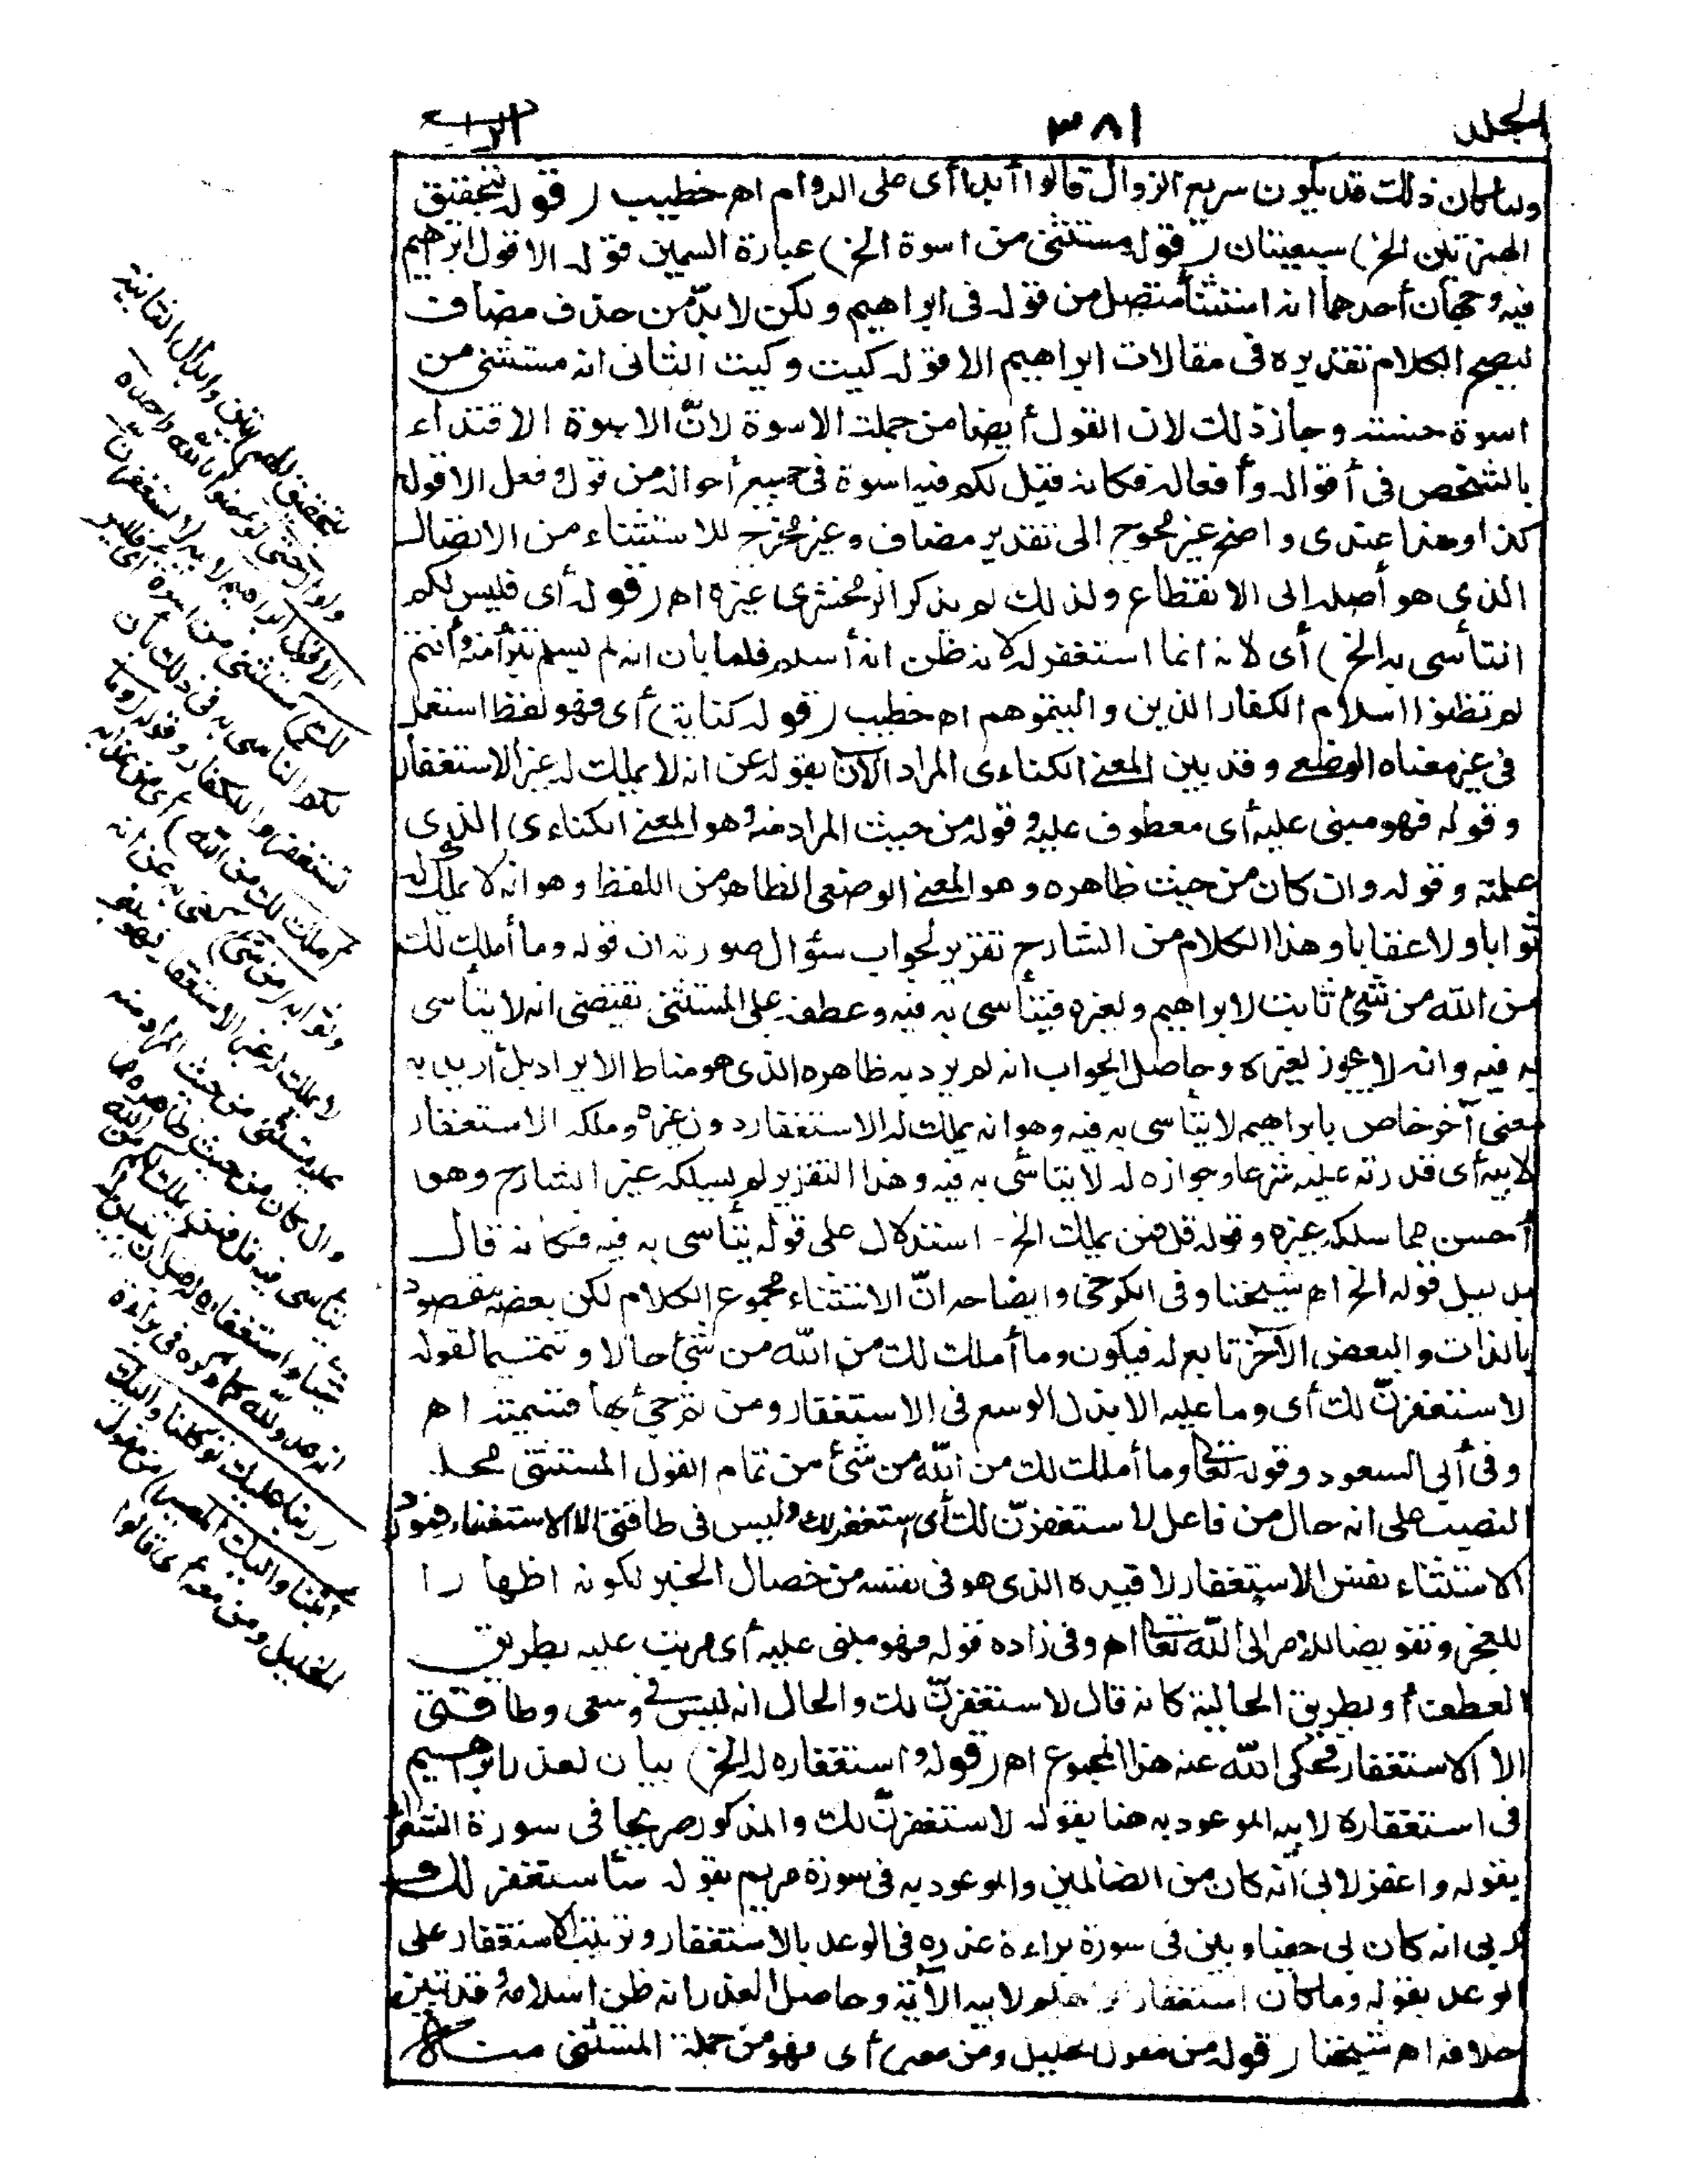 الجلد ٣٨١ الرابع
ولما كان ذلك قد يكون سريع الزوال قالوا أبدا أى على الدوام اهـ خطيب (قوله بتحقيق
الهمزتين الخ) سبعيتان (قوله مستثنى من اسوة الخ) عبارة السمين قوله الا قول ابراهيم
فيه وجهان أحدهما انه استثناء متصل من قوله فى ابراهيم ولكن لا بدّ من حذف مضاف
ليصح الكلام تقديره فى مقالات ابراهيم الا قوله كيت وكيت الثانى انه مستثنى من
اسوة حسنة وجاز ذلك لان القول أيضا من جملة الاسوة لانّ الاسوة الاقتداء
بالشخص فى أقواله وأفعاله فكانه قيل لكم فيه اسوة فى جميع أحواله من قول وفعل الا قوله
كذا وهذا عندى واضح غير محوج الى تقدير مضاف وغير مخرج للاستثناء من الاتصال
الذى هو أصله الى الانقطاع ولذلك لم يذكر الزمخشرى غيره اهـ (قوله أى فليس لكم
التأسى به الخ) أى لانه انما استغفر له لانه ظن انه أسلم فلما بان انه لم يسلم تبرأ منه وأنتم
لم تظنوا اسلام الكفار الذين واليتموهم اهـ خطيب (قوله كناية) أى فهو لفظ استعمل
فى غير معناه الوضعى وقد بين المعنى الكنائى المراد الآن بقوله عن انه لا يملك له غير الاستغفار
وقوله فهو مبنى عليه أى معطوف عليه وقوله من حيث المراد منه وهو المعنى الكنائى الذى
علمته وقوله وان كان من حيث ظاهره وهو المعنى الوضعى الظاهر من اللفظ وهو انه لا يملك له
ثوابا ولا عقابا وهذا الكلام من الشارح تقرير لجواب سؤال صورته ان قوله وما أملك لك
من الله من شئ ثابت لابراهيم ولغيره فيتأسى به فيه وعطفه على المستثنى يقتضى انه لا يتأسى
به فيه وانه لا يجوز لغيره وحاصل الجواب انه لم يرد به ظاهره الذى هو مناط الايراد بل أريد به
معنى آخر خاص بابراهيم لا يتأسى به فيه وهو انه يملك له الاستغفار دون غيره وملكه الاستغفار
لابيه أى قدرته عليه شرعا وجوازه له لا يتأسى به فيه وهذا التقرير لم يسلكه غير الشارح وهو
أحسن مما سلكه غيره وقوله قل فمن يملك الخ استدلال على قوله يتأسى به فيه فكانه قال
بدليل قوله الخ اهـ شيخنا وفى الكرخى وايضاحه انّ الاستثناء مجموع الكلام لكن بعضه مقصود
بالذات والبعض الآخر تابع له فيكون وما أملك لك من الله من شئ حالا وتتميما لقوله
لاستغفرنّ لك أى وما عليه الا بذل الوسع فى الاستغفار ومن ثم جئ بها فتتمته اهـ
وفى أبى السعود وقوله تعالى وما أملك لك من الله من شئ من تمام القول المستثنى محله
النصب على انه حال من فاعل لاستغفرنّ لك أى استغفر لك وليس فى طاقتى الا الاستغفار فمورد
الاستثناء نفس الاستغفار لا قيده الذى هو فى نفسه من خصال الخير لكونه اظهارا
للعجز وتفويضا للامر الى الله تعالى اهـ وفى زاده قوله فهو مبنى عليه أى مرتب عليه بطريق
العطف أو بطريق الحالية كانه قال لاستغفرنّ لك والحال انه ليس فى وسعى وطاقتى
الا الاستغفار فحكى الله عنه هذا المجموع اهـ (قوله واستغفاره له الخ) بيان لعذر ابراهيم
فى استغفاره لابيه الموعود به هنا بقوله لاستغفرنّ لك والمذكور صريحا فى سورة الشعراء
بقوله واغفر لابى انه كان من الضالين والموعود به فى سورة مريم بقوله سأستغفر لك
ربى انه كان بى حفيا وبين فى سورة براءة عذره فى الوعد بالاستغفار وترتيب الاستغفار على
الوعد بقوله وما كان استغفار ابراهيم لابيه الآية وحاصل العذر انه ظن اسلامه وقد تبين
خلافه اهـ شيخنا (قوله من مقول الخليل ومن معه) أى فهو من جملة المستثنى منه
بتحقيق الهمزتين وابدال الثانية
واوا (حتى تؤمنوا بالله وحده
الا قول ابراهيم لابيه لاستغفرنّ
لك) مستثنى من اسوة أى فليس
لكم التأسى به فى ذلك بأن
تستغفروا للكفار وقوله (وما
أملك لك من الله) أى من عذابه
وثوابه (من شئ) كنى به عن انه
لا يملك له غير الاستغفار فهو مبنى
عليه مستثنى من حيث المراد منه
وان كان من حيث ظاهره مما
يتأسى فيه قل فمن يملك لكم من الله
شيئا واستغفاره له قبل ان يتبين له
انه عدو لله كما ذكره فى براءة
(ربنا عليك توكلنا واليك
أنبنا واليك المصير) من مقول
الخليل ومن معه أى قالوا